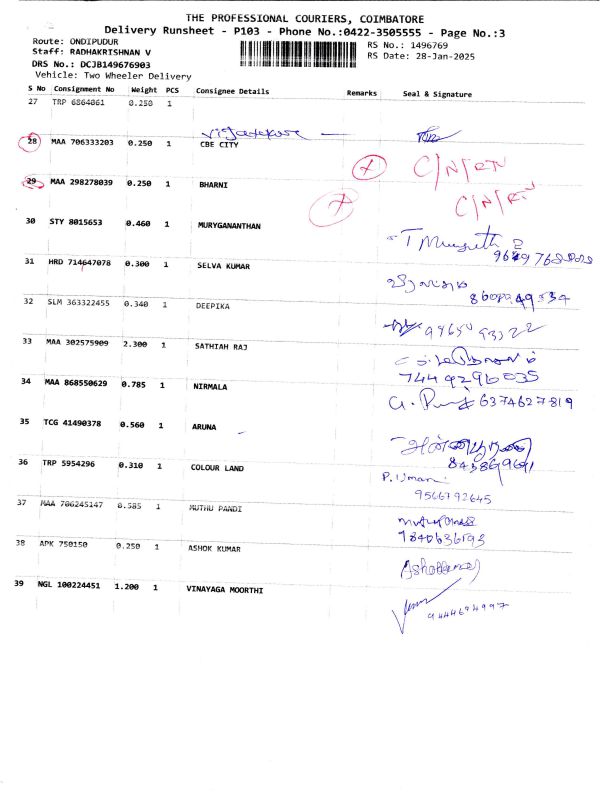 THE PROFESSIONAL COURIERS, COIMBATORE
Delivery Runsheet - P103 - Phone No.:0422-3505555 - Page No.:3
Route: ONDIPUDUR
RS No.: 1496769
Staff: RADHAKRISHNAN V
RS Date: 28-Jan-2025
DRS No.: DCJB149676903
Vehicle: Two Wheeler Delivery
S No Consignment No Weight PCS Consignee Details Remarks Seal & Signature
27 TRP 6864061 0.250 1
28 MAA 706333203 0.250 1 CBE CITY
C/N/RN
29 MAA 298278039 0.250 1 BHARNI
C/N/RN
30 STY 8015653 0.460 1 MURYGANANTHAN
31 HRD 714647078 0.300 1 SELVA KUMAR
32 SLM 363322455 0.340 1 DEEPIKA
33 MAA 302575909 2.300 1 SATHIAH RAJ
7449296035
34 MAA 868550629 0.785 1 NIRMALA
6374627819
35 TCG 41490378 0.560 1 ARUNA
36 TRP 5954296 0.310 1 COLOUR LAND
9566792645
37 MAA 706245147 0.585 1 MUTHU PANDI
38 APK 750150 0.250 1 ASHOK KUMAR
39 NGL 100224451 1.200 1 VINAYAGA MOORTHI
9444694997